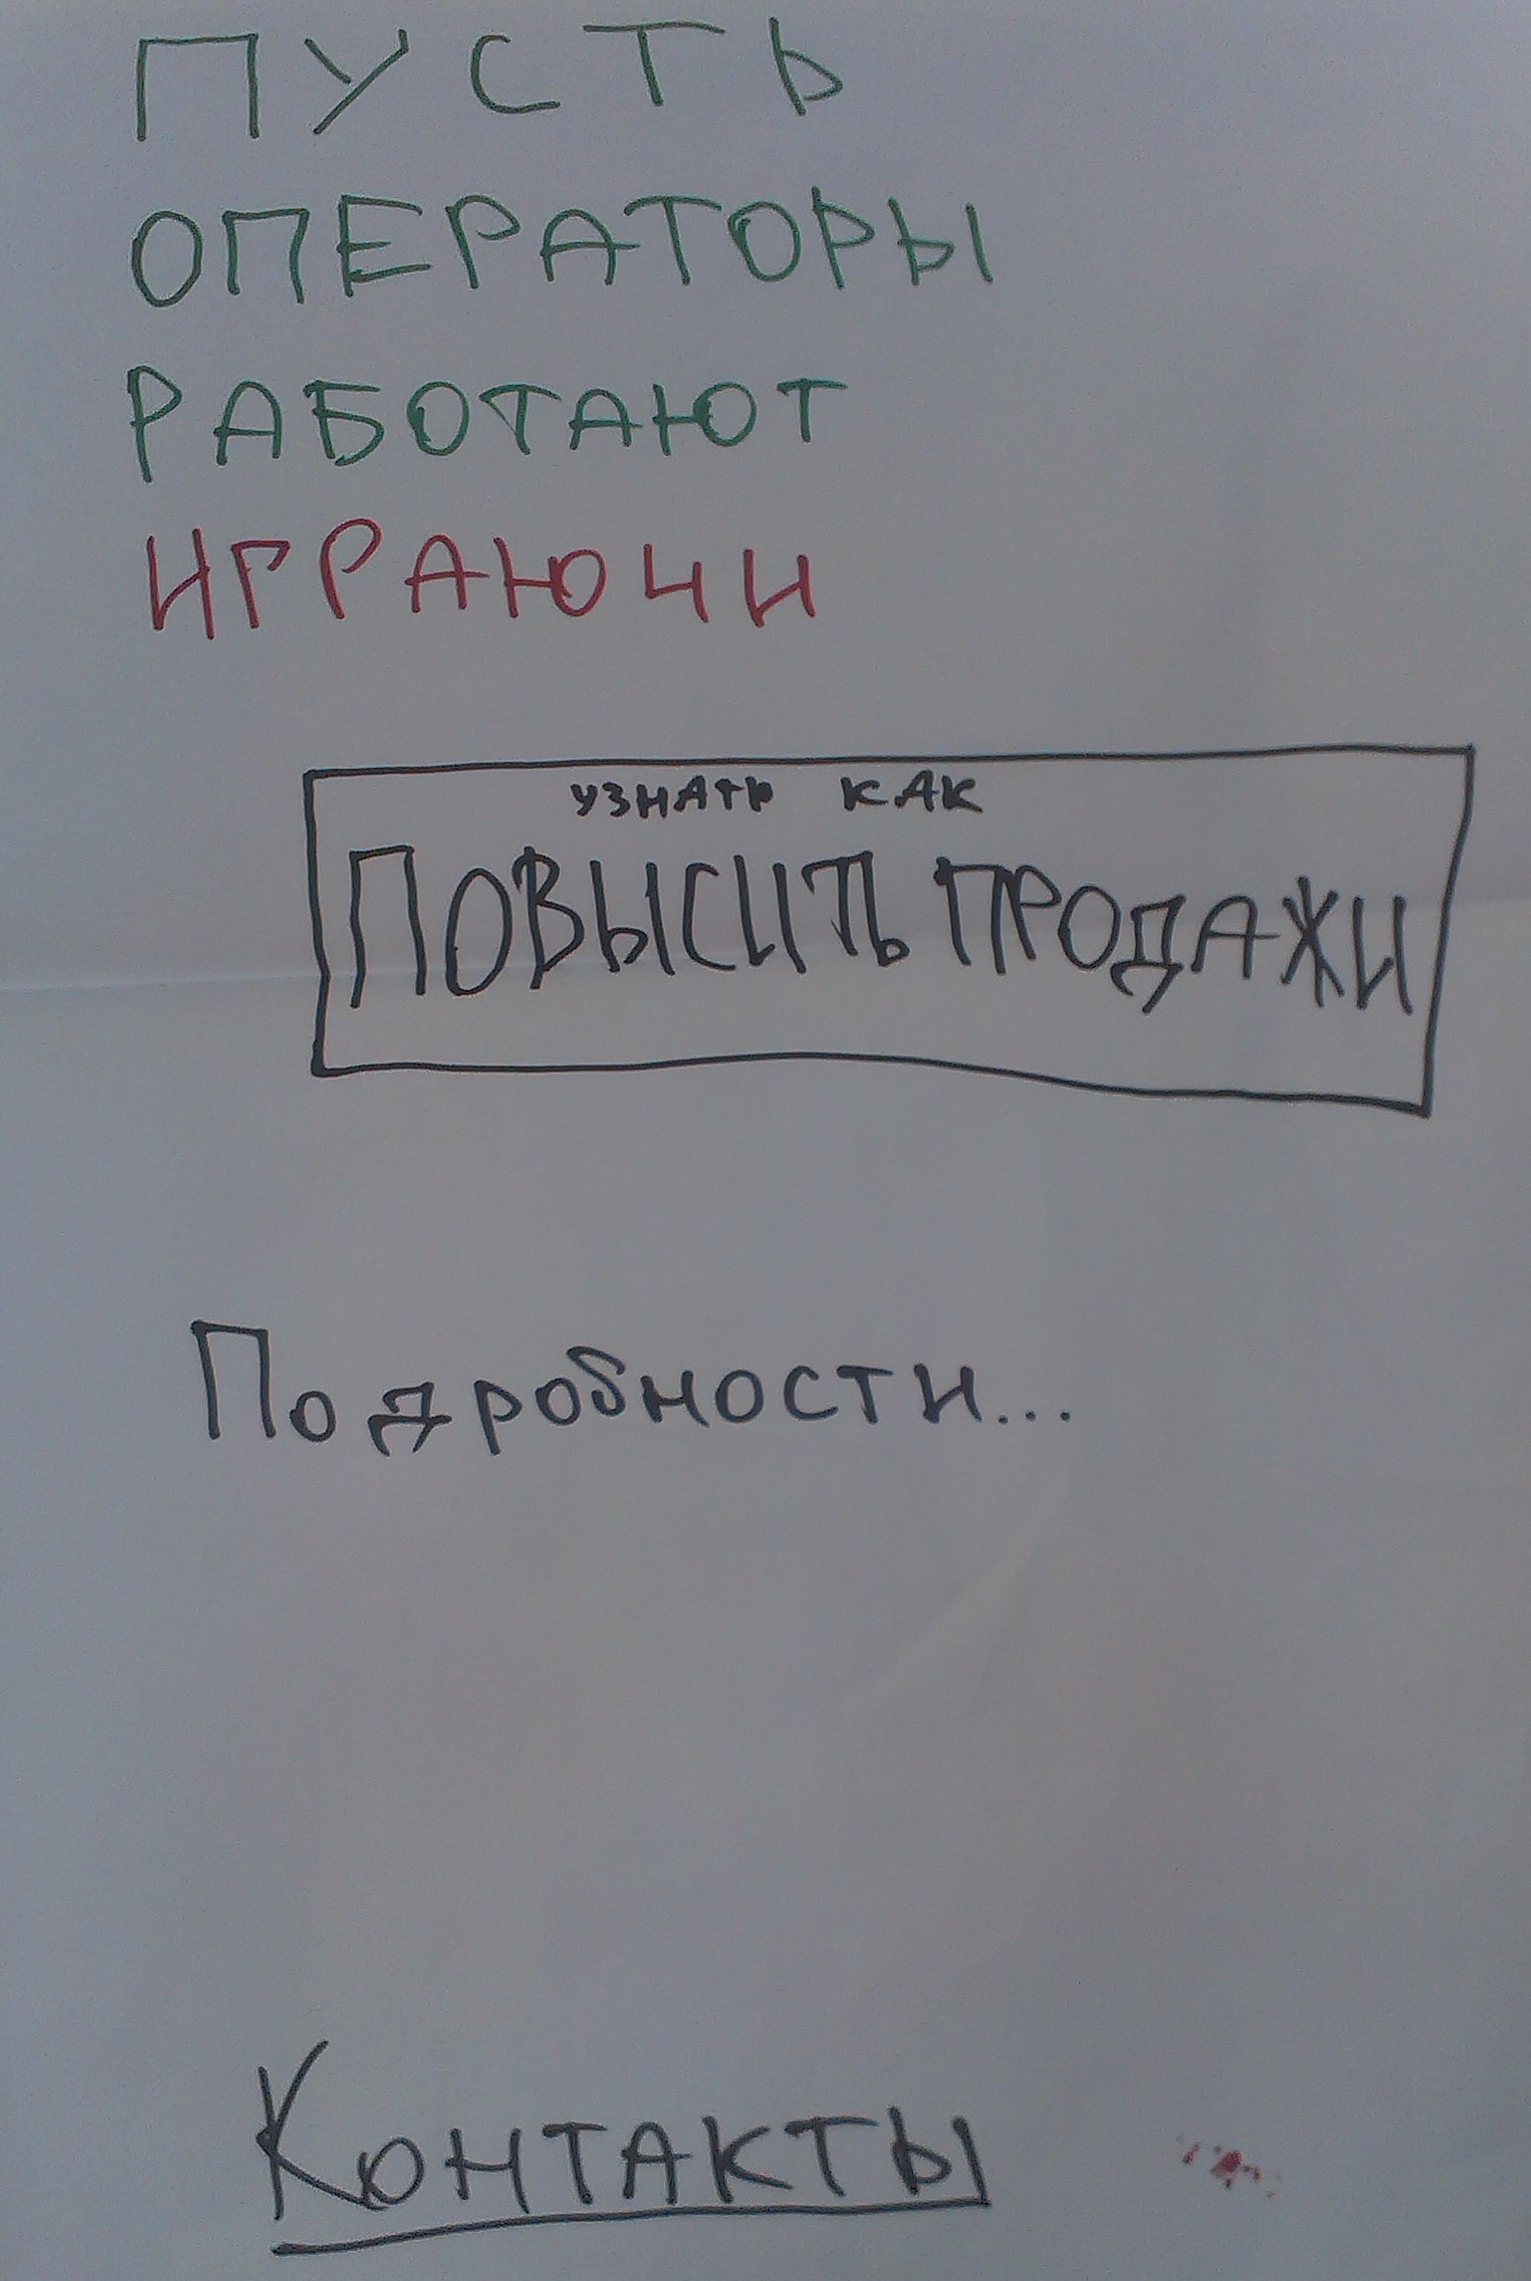 ПУСТЬ
ОПЕРАТОРЫ
РАБОТАЮТ
ИГРАЮЧИ
УЗНАТЬ КАК
ПОВЫСИТЬ ПРОДАЖИ
Подробности...
Контакты